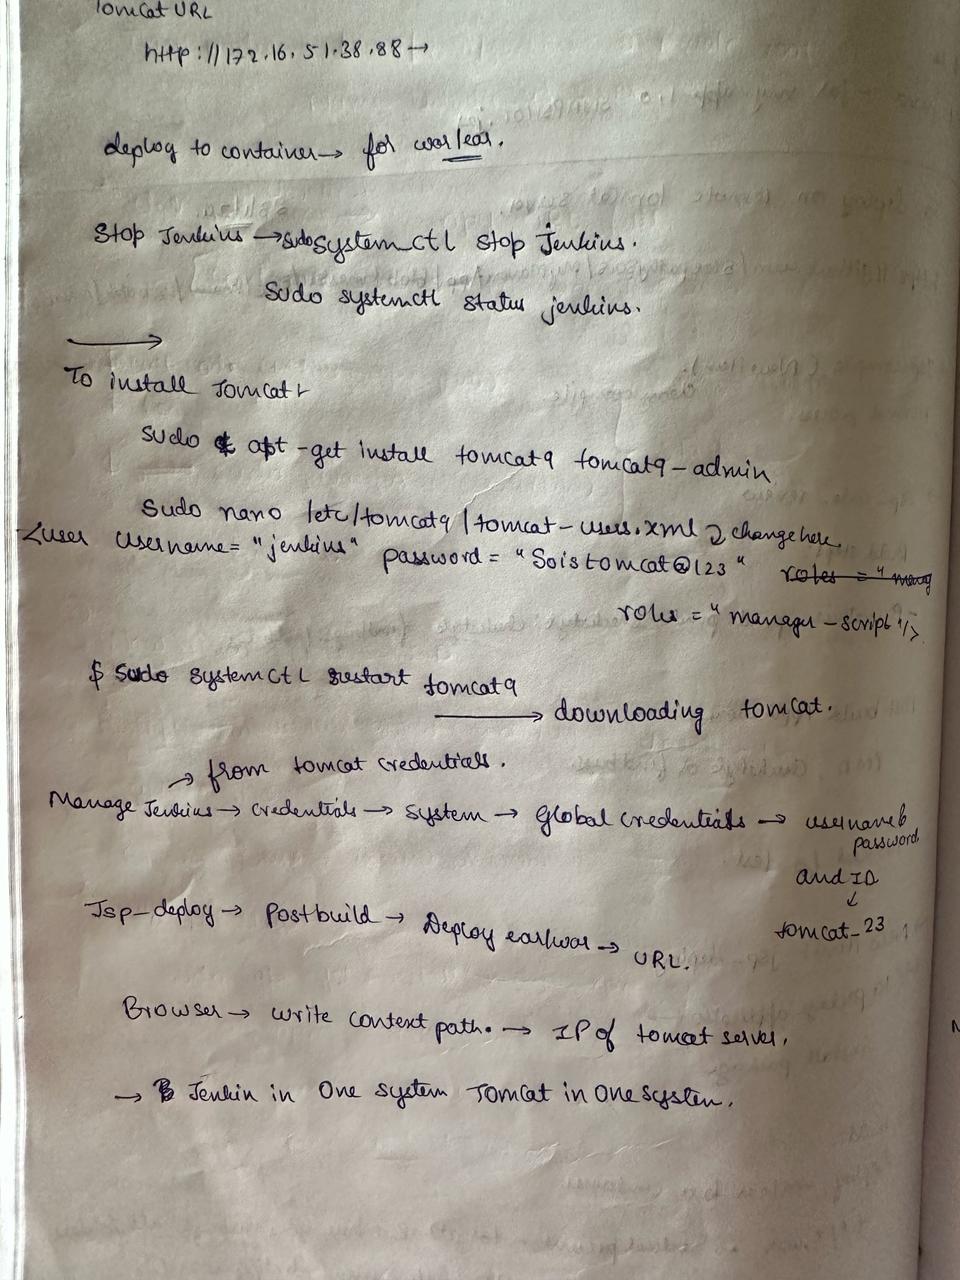 Tomcat URL
http://172.16.51.38.88→
deploy to container→ for war/ear.
Stop Jenkins →sudo systemctl stop jenkins.
Sudo systemctl status jenkins.
→
To install Tomcat
sudo apt-get install tomcat9 tomcat9-admin
sudo nano /etc/tomcat9/tomcat-users.xml change here
<user username="jenkins" password="Soistomcat@123" roles="mang
roles="manager-script"/>
$ sudo systemctl restart tomcat9
→ downloading tomcat.
→ from tomcat credentials.
Manage Jenkins→ credentials→ system→ Global credentials→ username &
password
and ID
↓
tomcat_23
Jsp-deploy→ Postbuild→ Deploy ear/war→ URL.
Browser→ write context path.→ IP of tomcat server.
→ Jenkin in One system Tomcat in One system.